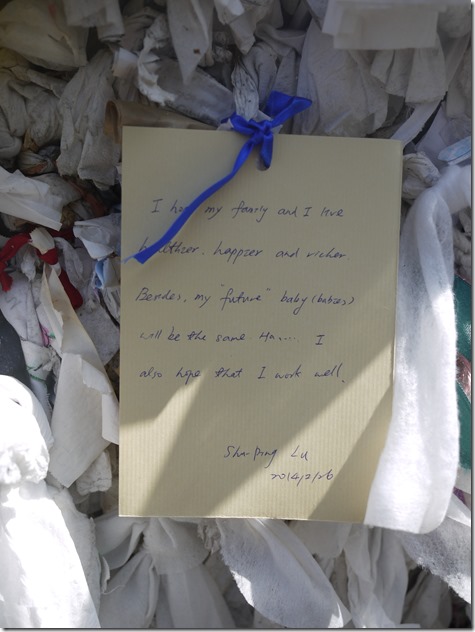 I hope my family and I live
healthier, happier and richer
Besides, my "future" baby (babies)
will be the same. Ha.... I
also hope that I work well.
Lu
2014/2/26